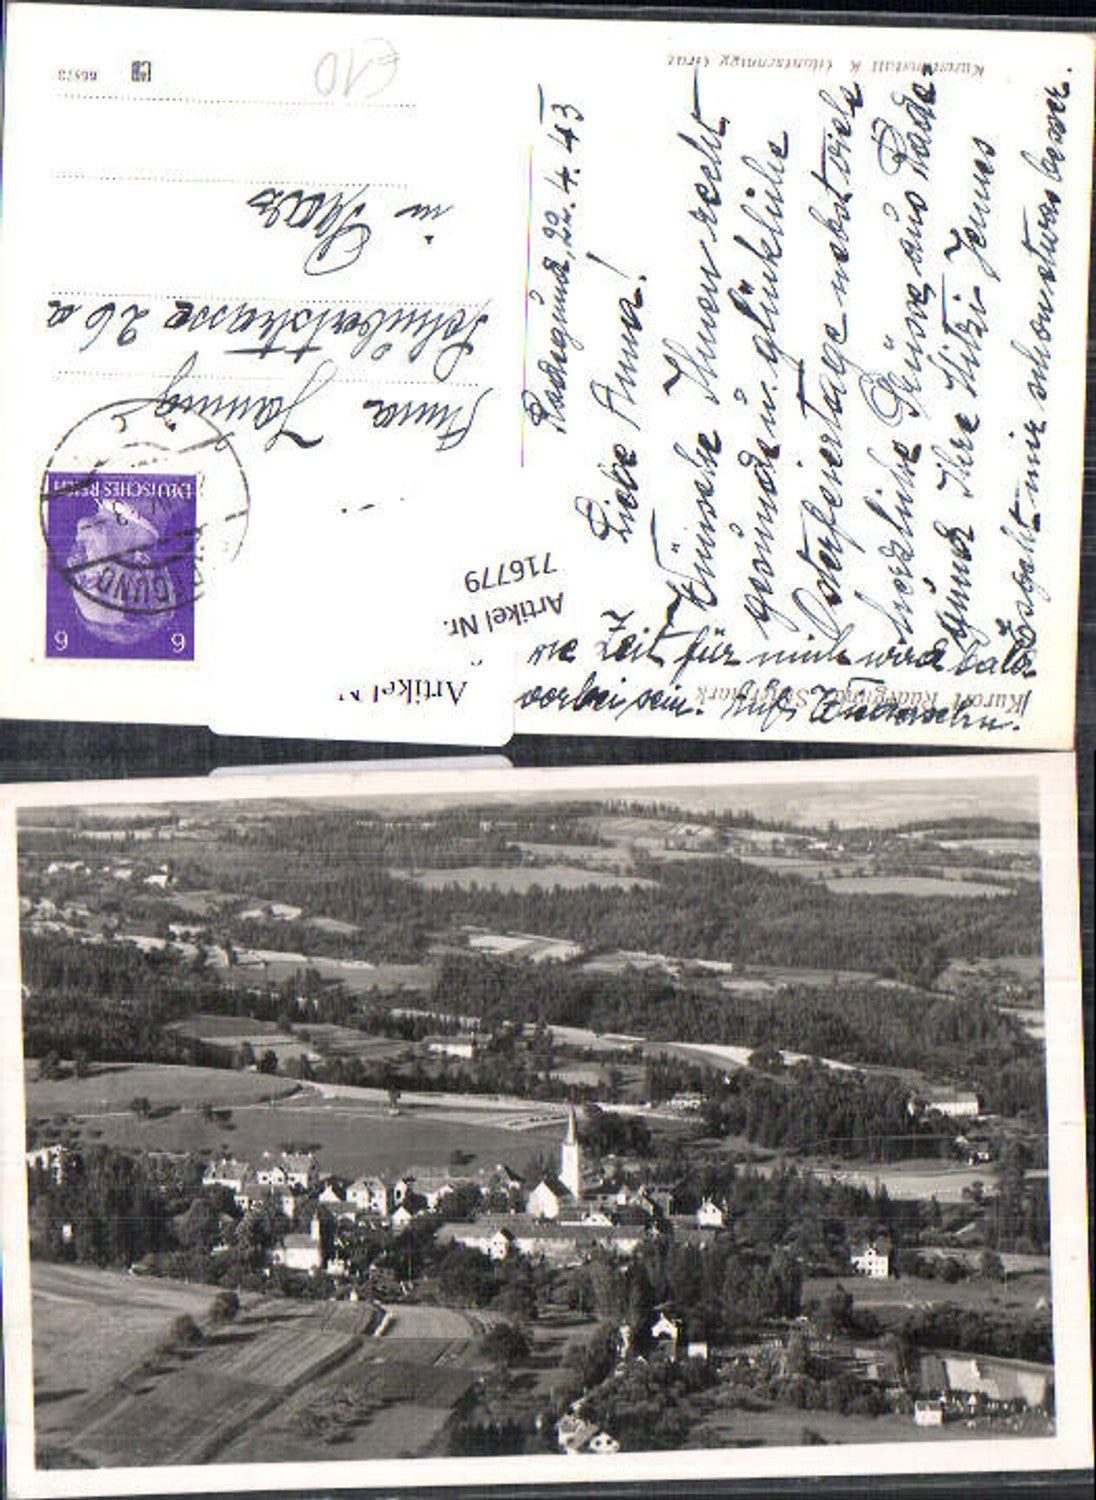 Radegund, 22. 4. 43
Liebe Anna!
Wünsche Ihnen recht
gesunde u. glückliche
Osterfeiertage nebst viele
herzliche Grüsse aus Rade-
gund Ihre Mitzi
Es geht mir schon etwas besser.
ne Zeit für mich wird bald
vorbei sein. Aufs Wiedersehn.
Anna
Schubertstrasse 26a
in Graz
DEUTSCHES REICH
6 6
Artikel Nr.
716779
Artikel N
Kurort Radegund, Steiermark
66873
€10